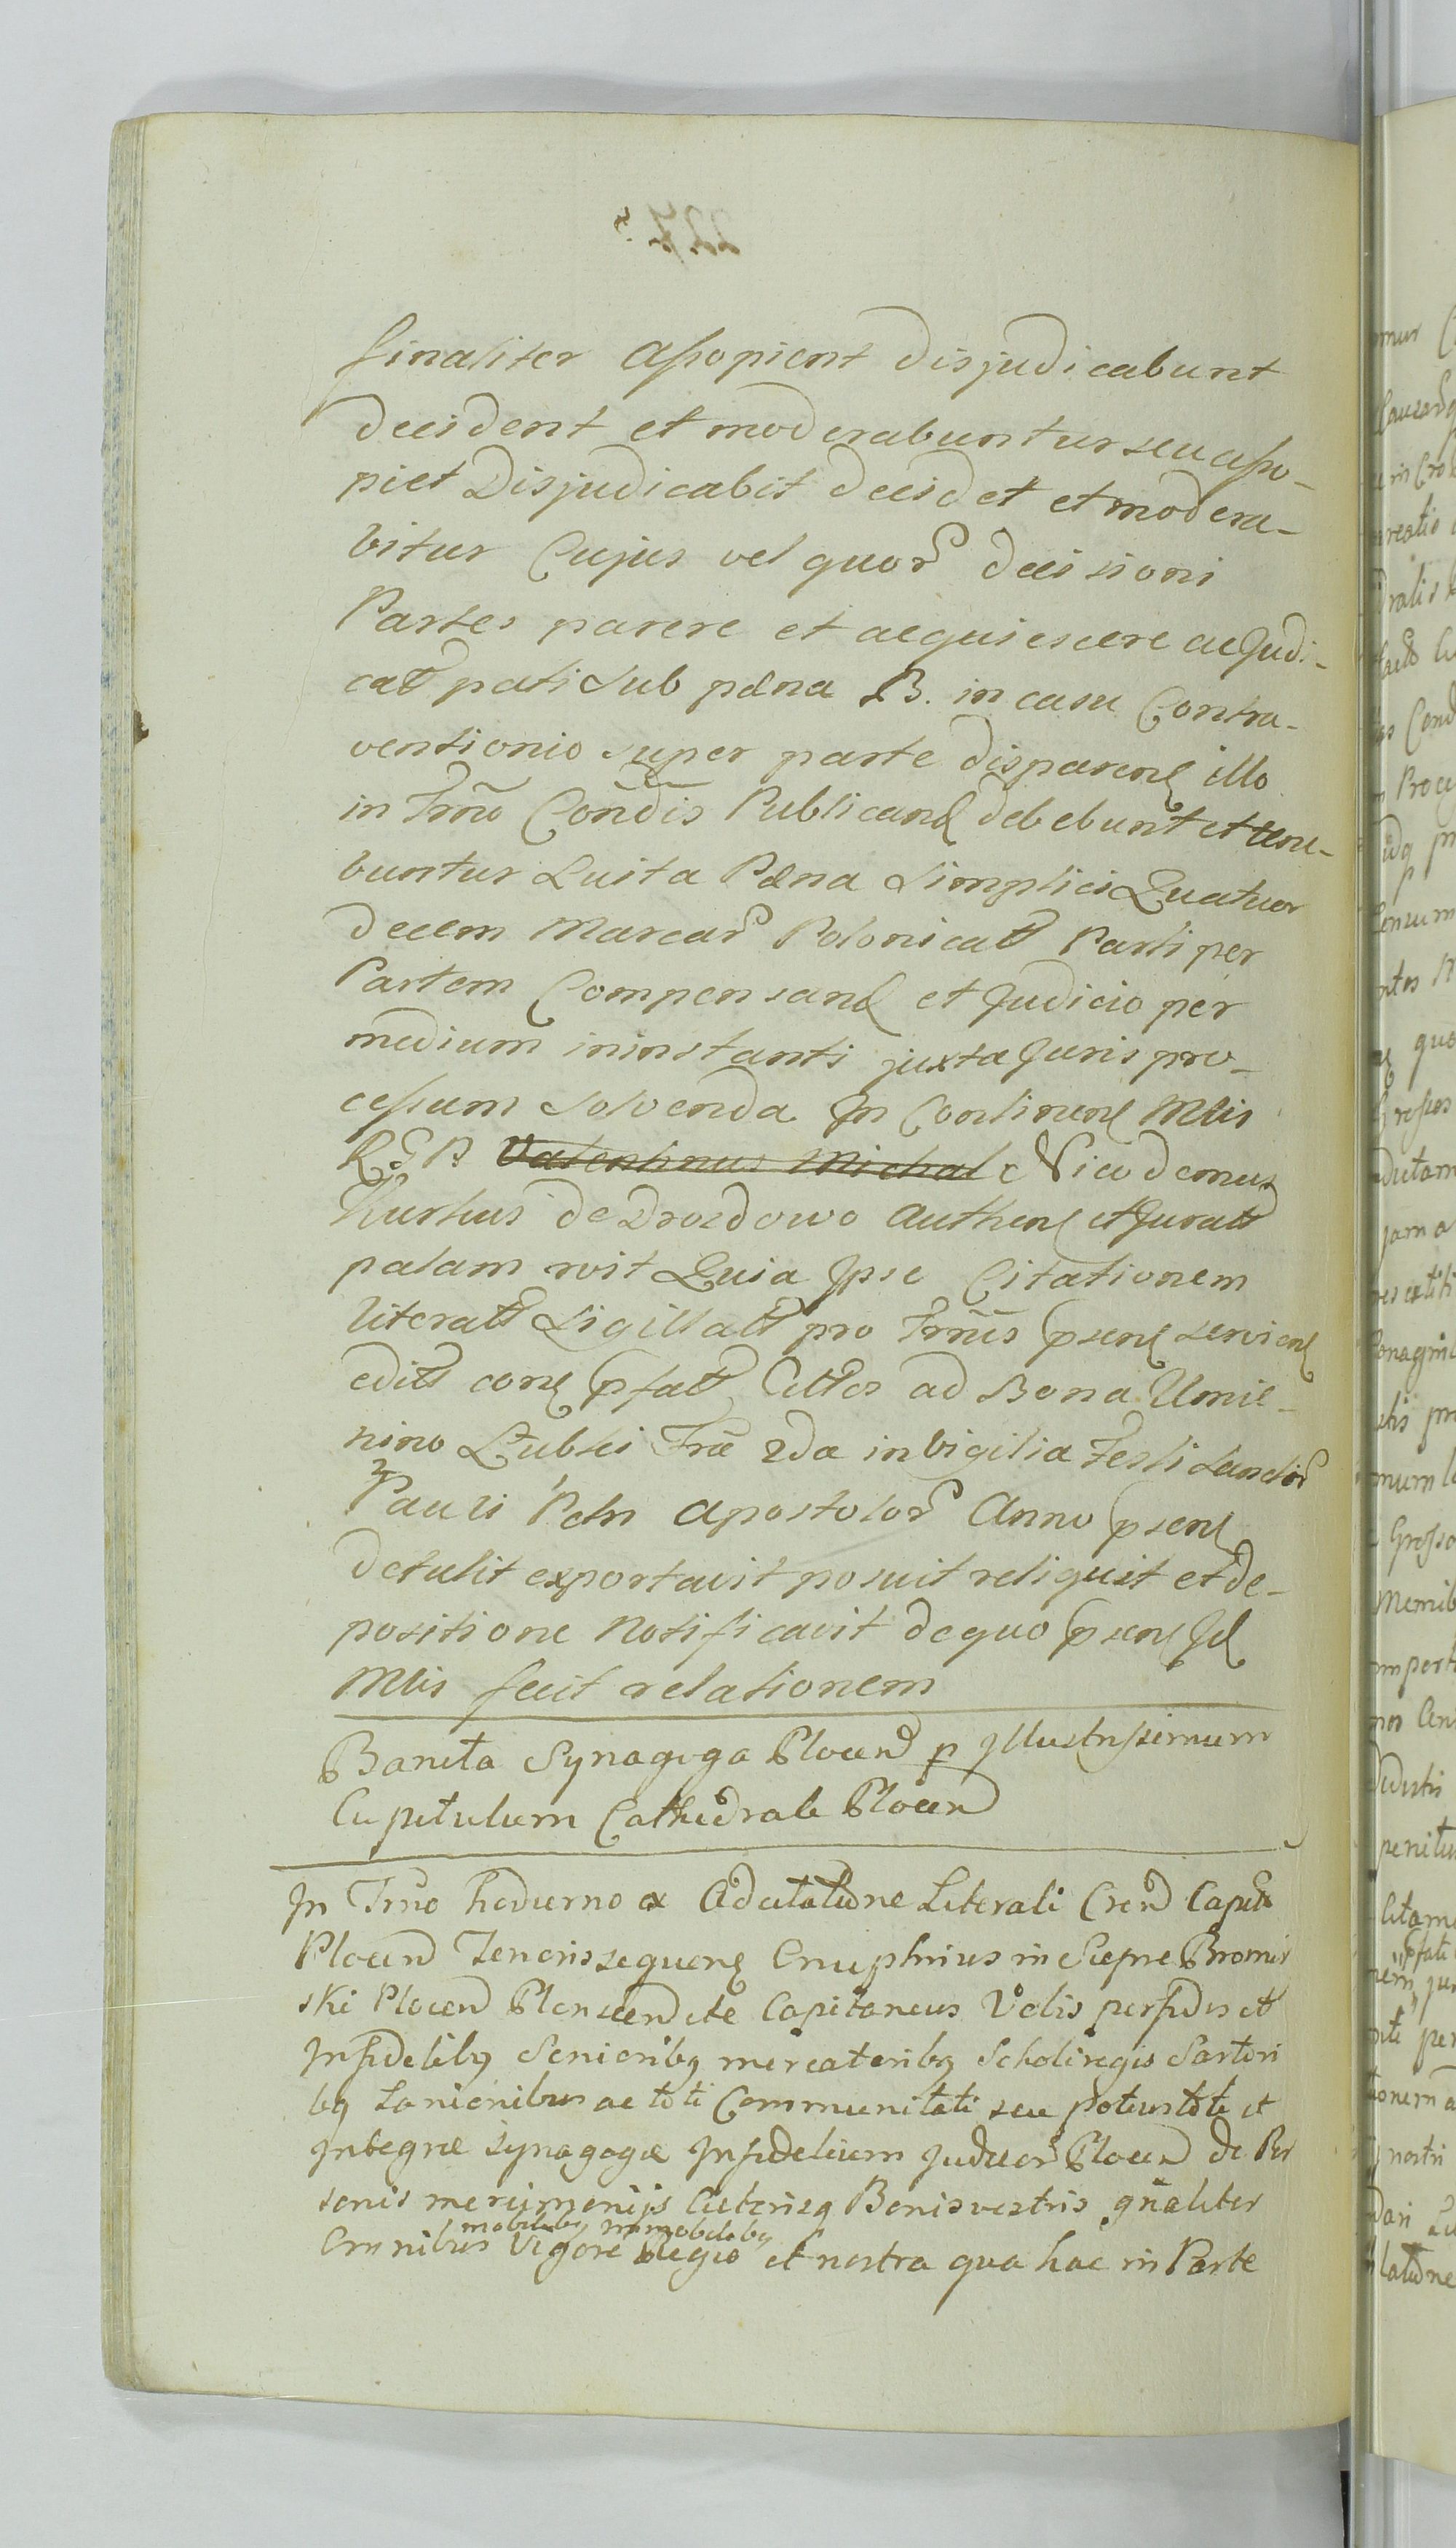 finaliter assopient disjudicabunt
decident et moderabuntur seu asso-
piet Disjudicabit decidet et modera-
bitur Cujus vel quor decisioni
Partes parere et acquiescere ac Judi-
cat pati sub pæna B. in casu Contra-
ventionis super parte disparen illo
in Trno Condis Publicand debebunt et tene-
buntur Luita Pæna simplici Quatuor
decem Marcar Polonicat Parti per
Partem Compensand et Judicio per
medium in instanti juxta Juris pro-
cessum solvenda In Continen Mlis
RGP Valentinus Michal Nicodemus
de Drozdowo Authen et Jurat
palam rvit Quia Ipse Citationem
literat Sigillat pro Trnis psen servien
edit con pfat Cittos ad Bona Umie-
nino Lubki Fræ 2da in Vigilia Festi Sanctor
Pauli Petri Apostolor Anno psen
detulit exportavit posuit reliquit et de-
positione notificavit de quo psen Jd
Mlis fecit relationem
Banita Synagoga Plocen p Illustrissimum
Capitulum Cathedrale Plocen
In Trno hodierno ex Adcitatione Literali Capit
Plocen Tenoris sequen Onuphrius in Siepre Bromir
ski Plocen Plonscen etc Capitaneus Vobis perfidis et
Infidelibq Senioribq mercatoribq Scholiregis Sartori
bq Lanionibus ac toti Communitati seu potius toti et
Integræ Synagogæ Infidelium Judæor Plocen de Per
sonis mercimonijs Cæterisq Bonis vestris gnaliter
mobilibq immobilibq
Omnibus Vigore Regio et nostra qua hac in Parte